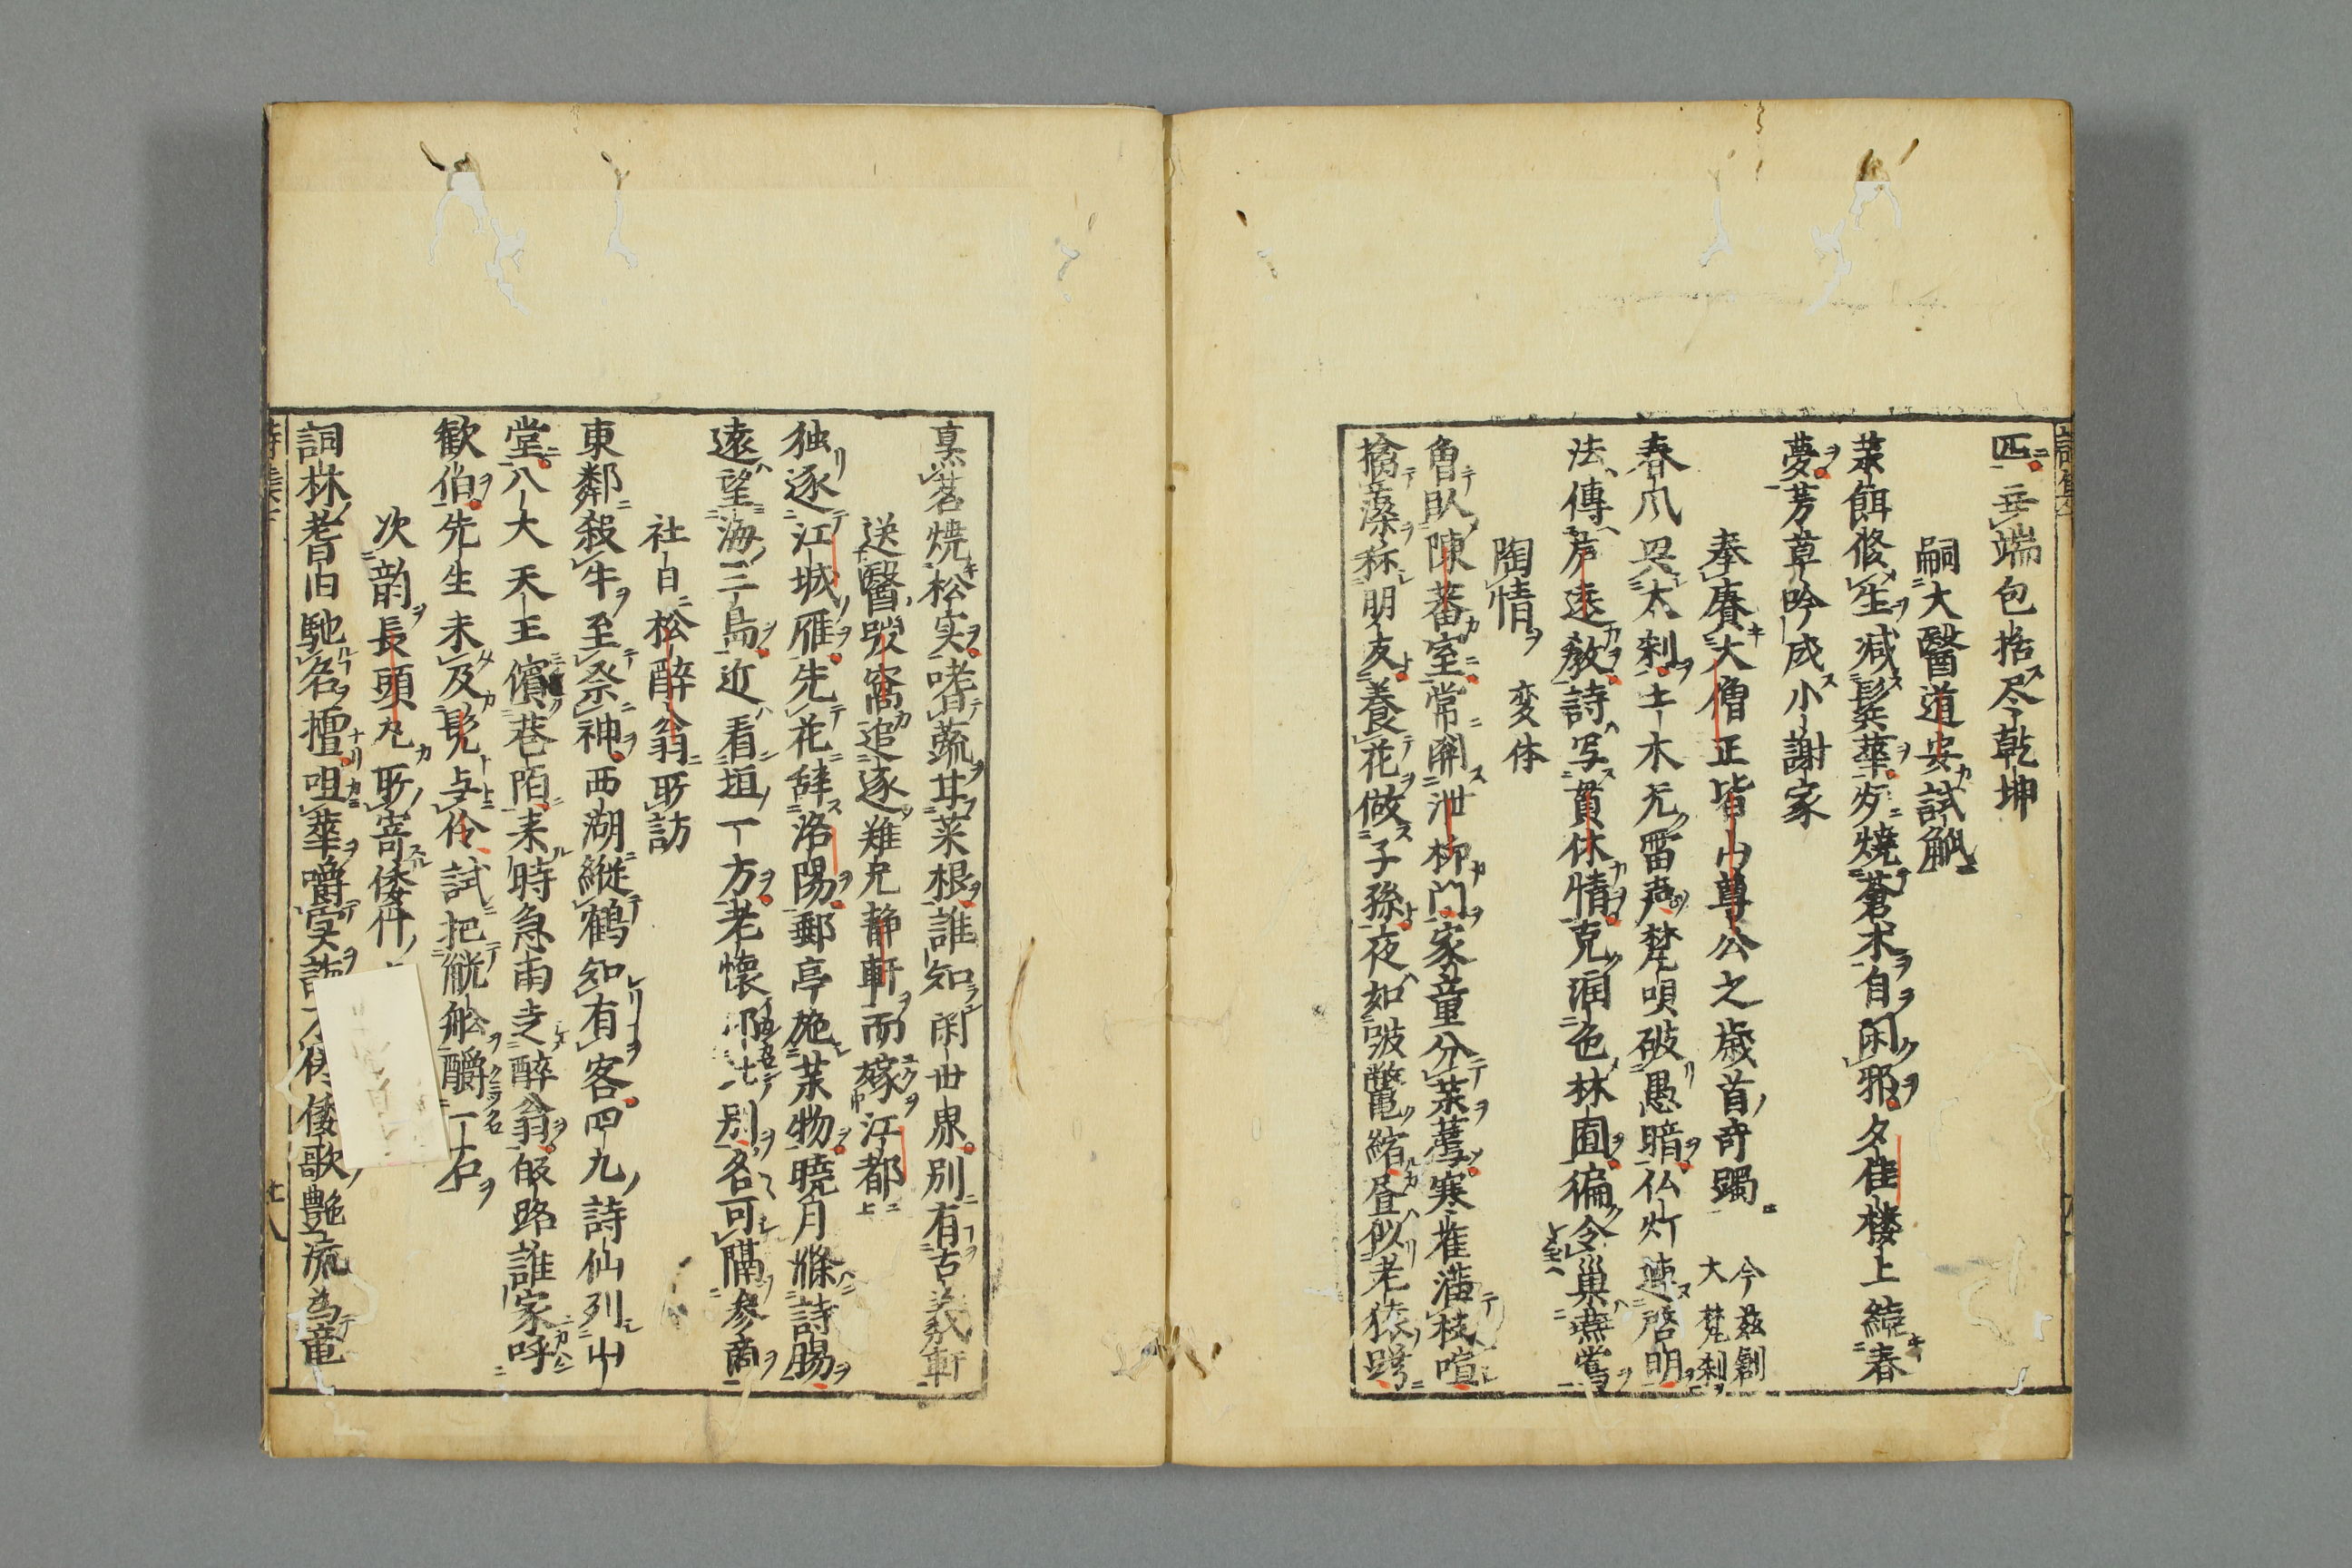 匹垂端包括尽乾坤
嗣大醫道安試觚
茶餌修生减鬂華夕燒蒼朮自闲邪夕佳楼上繞春
夢芳草吟成小謝家
奉賡大僧正皆山尊公之歳首奇躅
今茲創
大梵刹
春爪興太刹土木无雷声梵唄破愚暗仏灯連啓明
法傳芦遠教詩写貫休情克潤色林園徧令巣燕鴬
陶情 変体
魯臥陳蕃室常開泄柳門家童分茶蕈寒雀満枝喧
擒藻秝朋友養花做子孫夜如跛鼈縮昼似老猿蹲
烹茗焼松実啫蔬甘菜根誰知闲世界別有舌義軒
送醫叟窩追逐難兄静軒而嫁江都
独逐江城雁先花辞洛陽郵亭施茶物暁月滌詩腸
遠望海三島近看垣一方老懐別各可隔参商
社日松醉翁所訪
東鄰殺牛至祭神西湖縦鶴知有客四九詩仙列山
堂八大天王儐巷陌来時急雨送醉翁皈路誰家呼
歓伯先生未及髡与伶試把觥船釂一石
次韵長頭丸所寄倭什
詞林耆旧馳名擅咀華嚼実倭歌艶流為竜